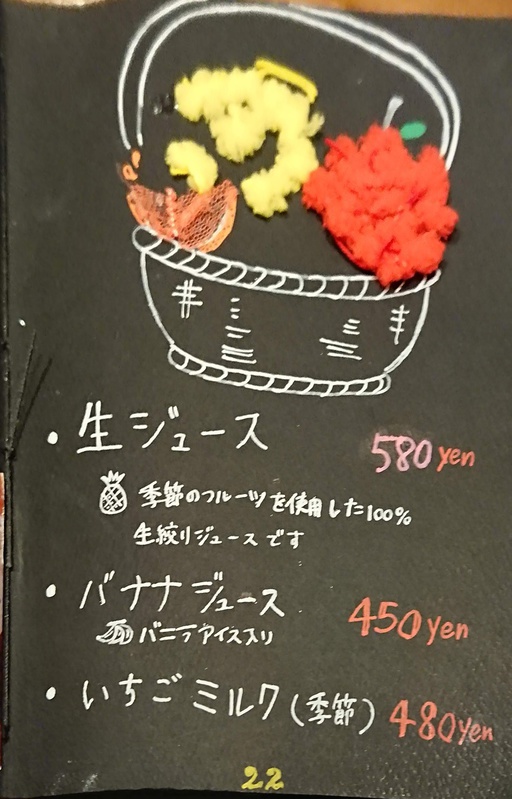 ・生ジュース 580yen
季節のフルーツを使用した100%
生絞りジュースです
・バナナジュース 450yen
バニラアイス入り
・いちごミルク(季節) 480yen
22